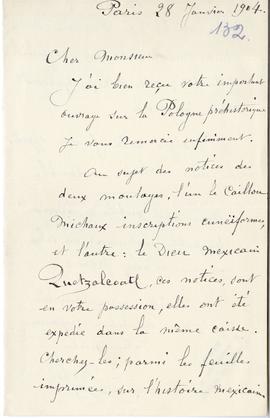 Paris 28 Janvier 1904.
132.
Cher Monsieur
J'ai bien reçu votre important
ouvrage sur la Pologne préhistorique
Je vous remercie infiniment.
Au sujet des notices des
deux moulages, l'un le Caillou
Michaux inscriptions cunéiformes,
et l'autre: le Dieu Mexicain
Quetzalcoatl, ces notices, sont
en votre possession, elles ont été
expédié dans la même caisse.
Cherchez-les; parmi les feuilles
imprimées, sur l'histoire mexicain